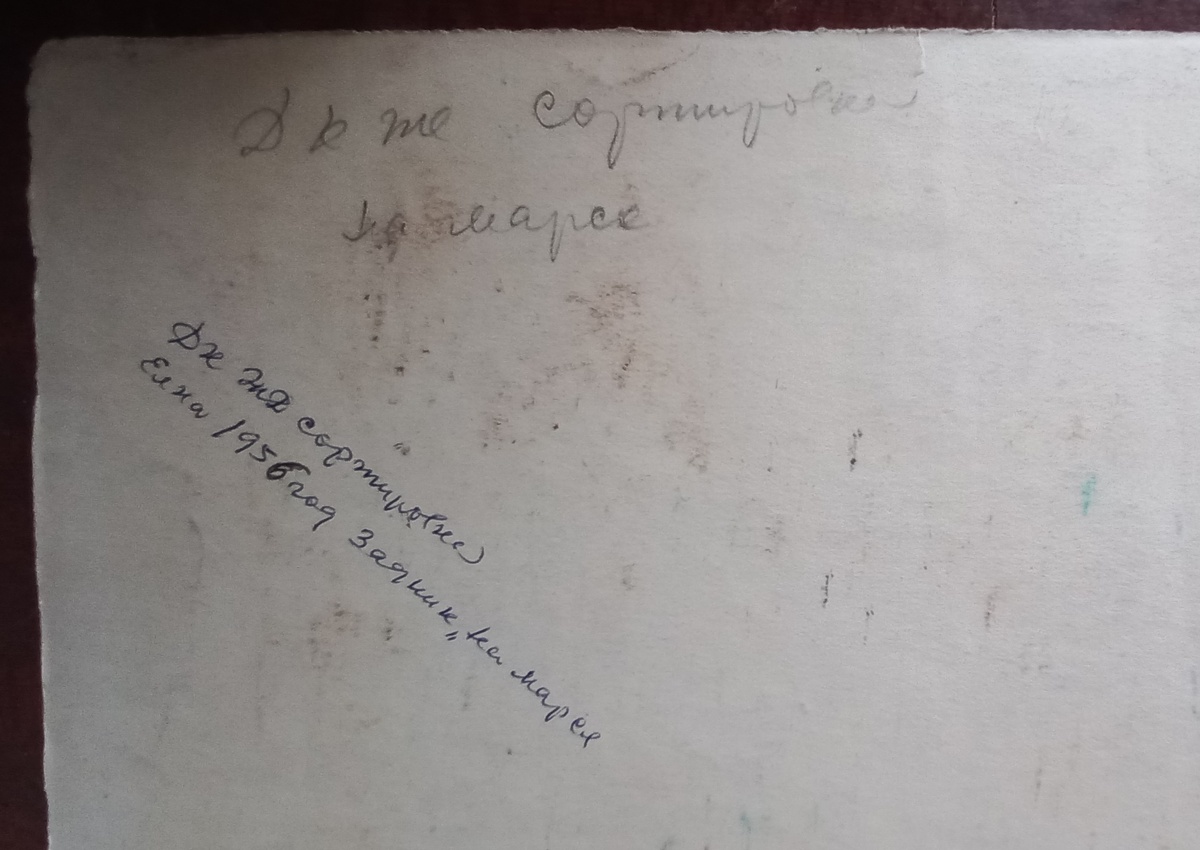 Дк же сортировка
на марсе
Дк жд сортировка
Елка 1956 год Зайчик „на марсе